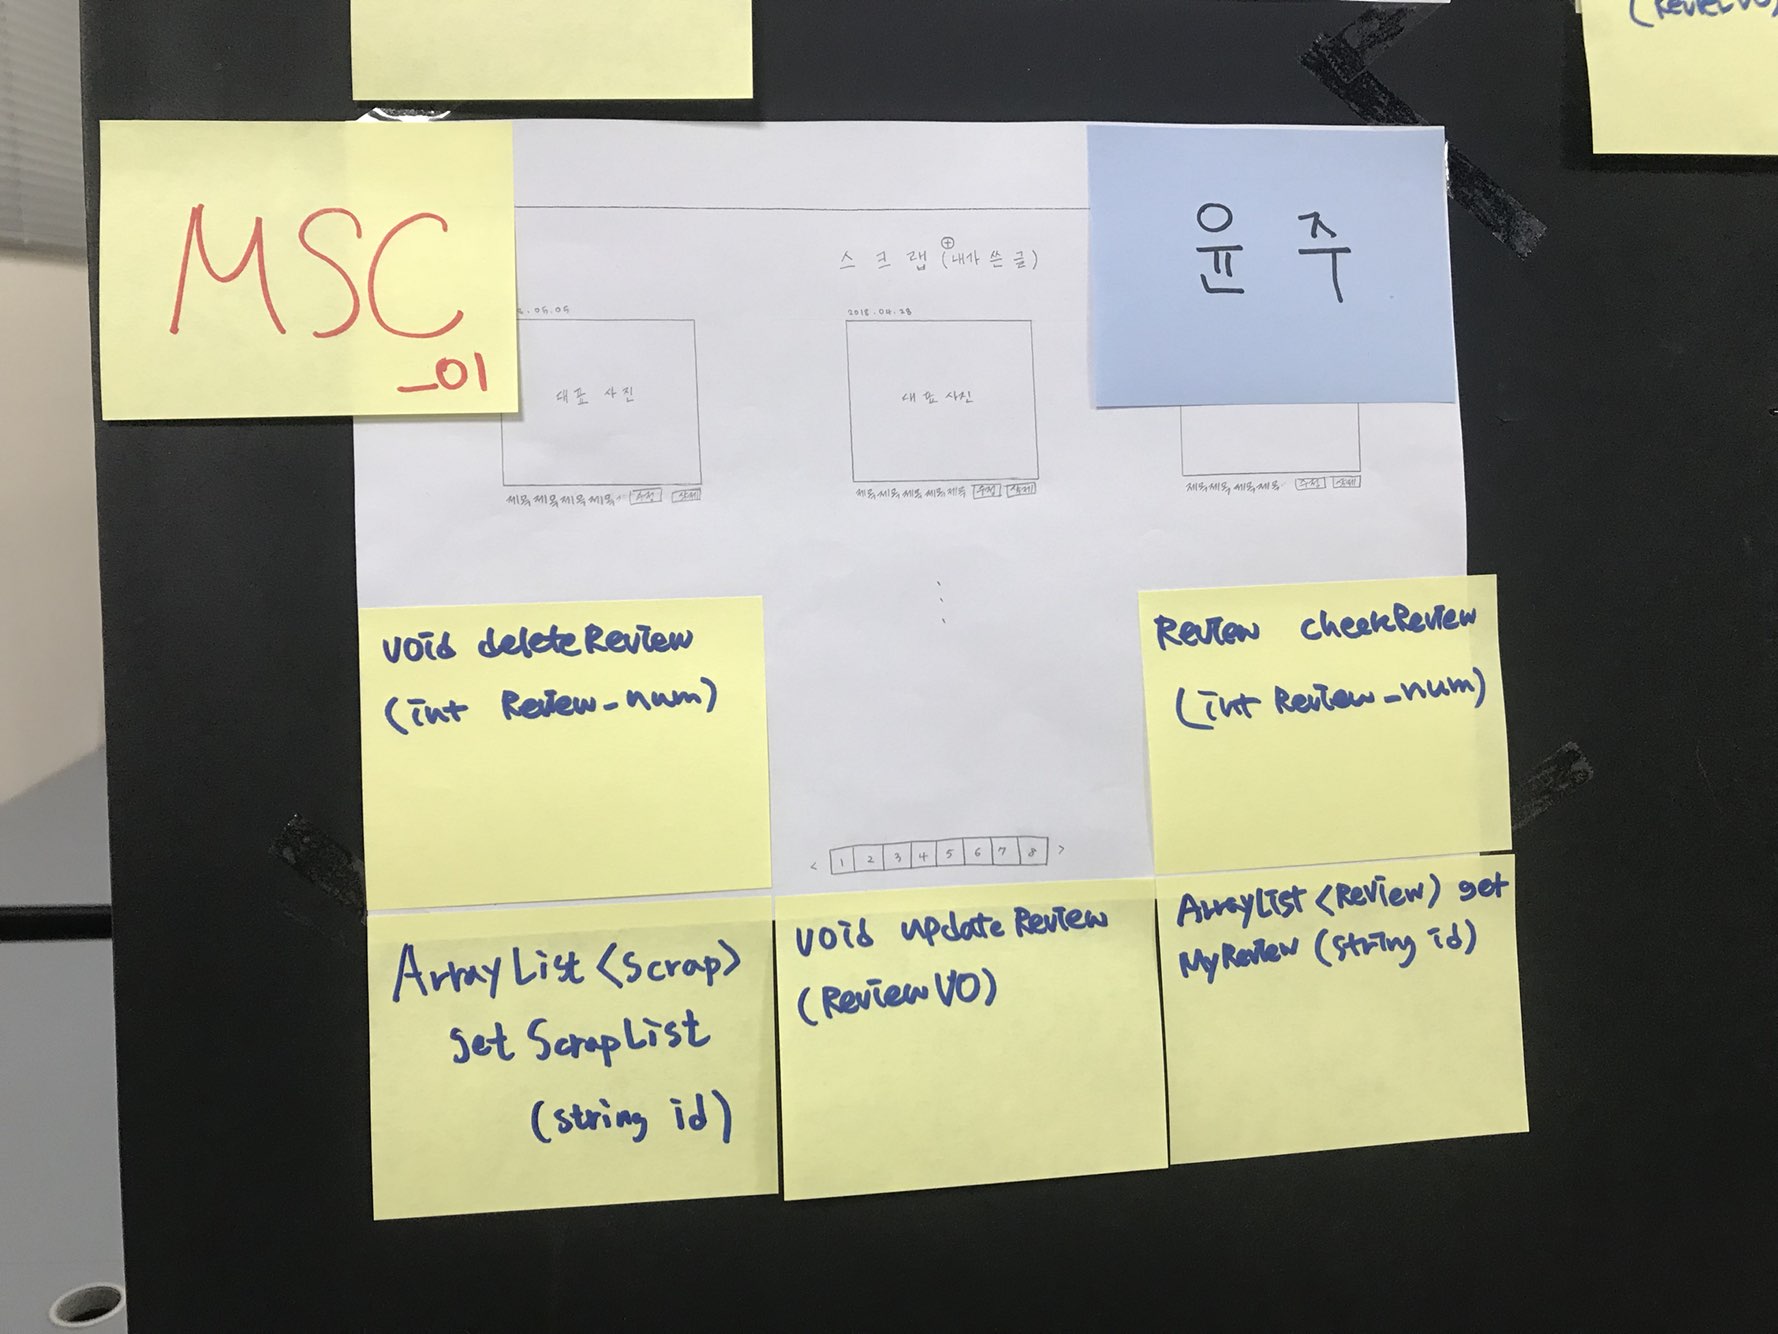 (ReviewVO)
MSC
_01
윤주
스크랩 (내가 쓴 글)
.05.05
2018.04.28
대표 사진
대표 사진
제목제목제목제목.. 수정 삭제
제목제목제목제목제목 수정 삭제
제목제목제목제목. 수정 삭제
void deleteReview
(int Review_num)
Review checkReview
(int Review_num)
< 1 2 3 4 5 6 7 8 >
ArrayList <Scrap>
get ScrapList
(string id)
void updateReview
(ReviewVO)
ArrayList <Review) get
MyReview (string id)